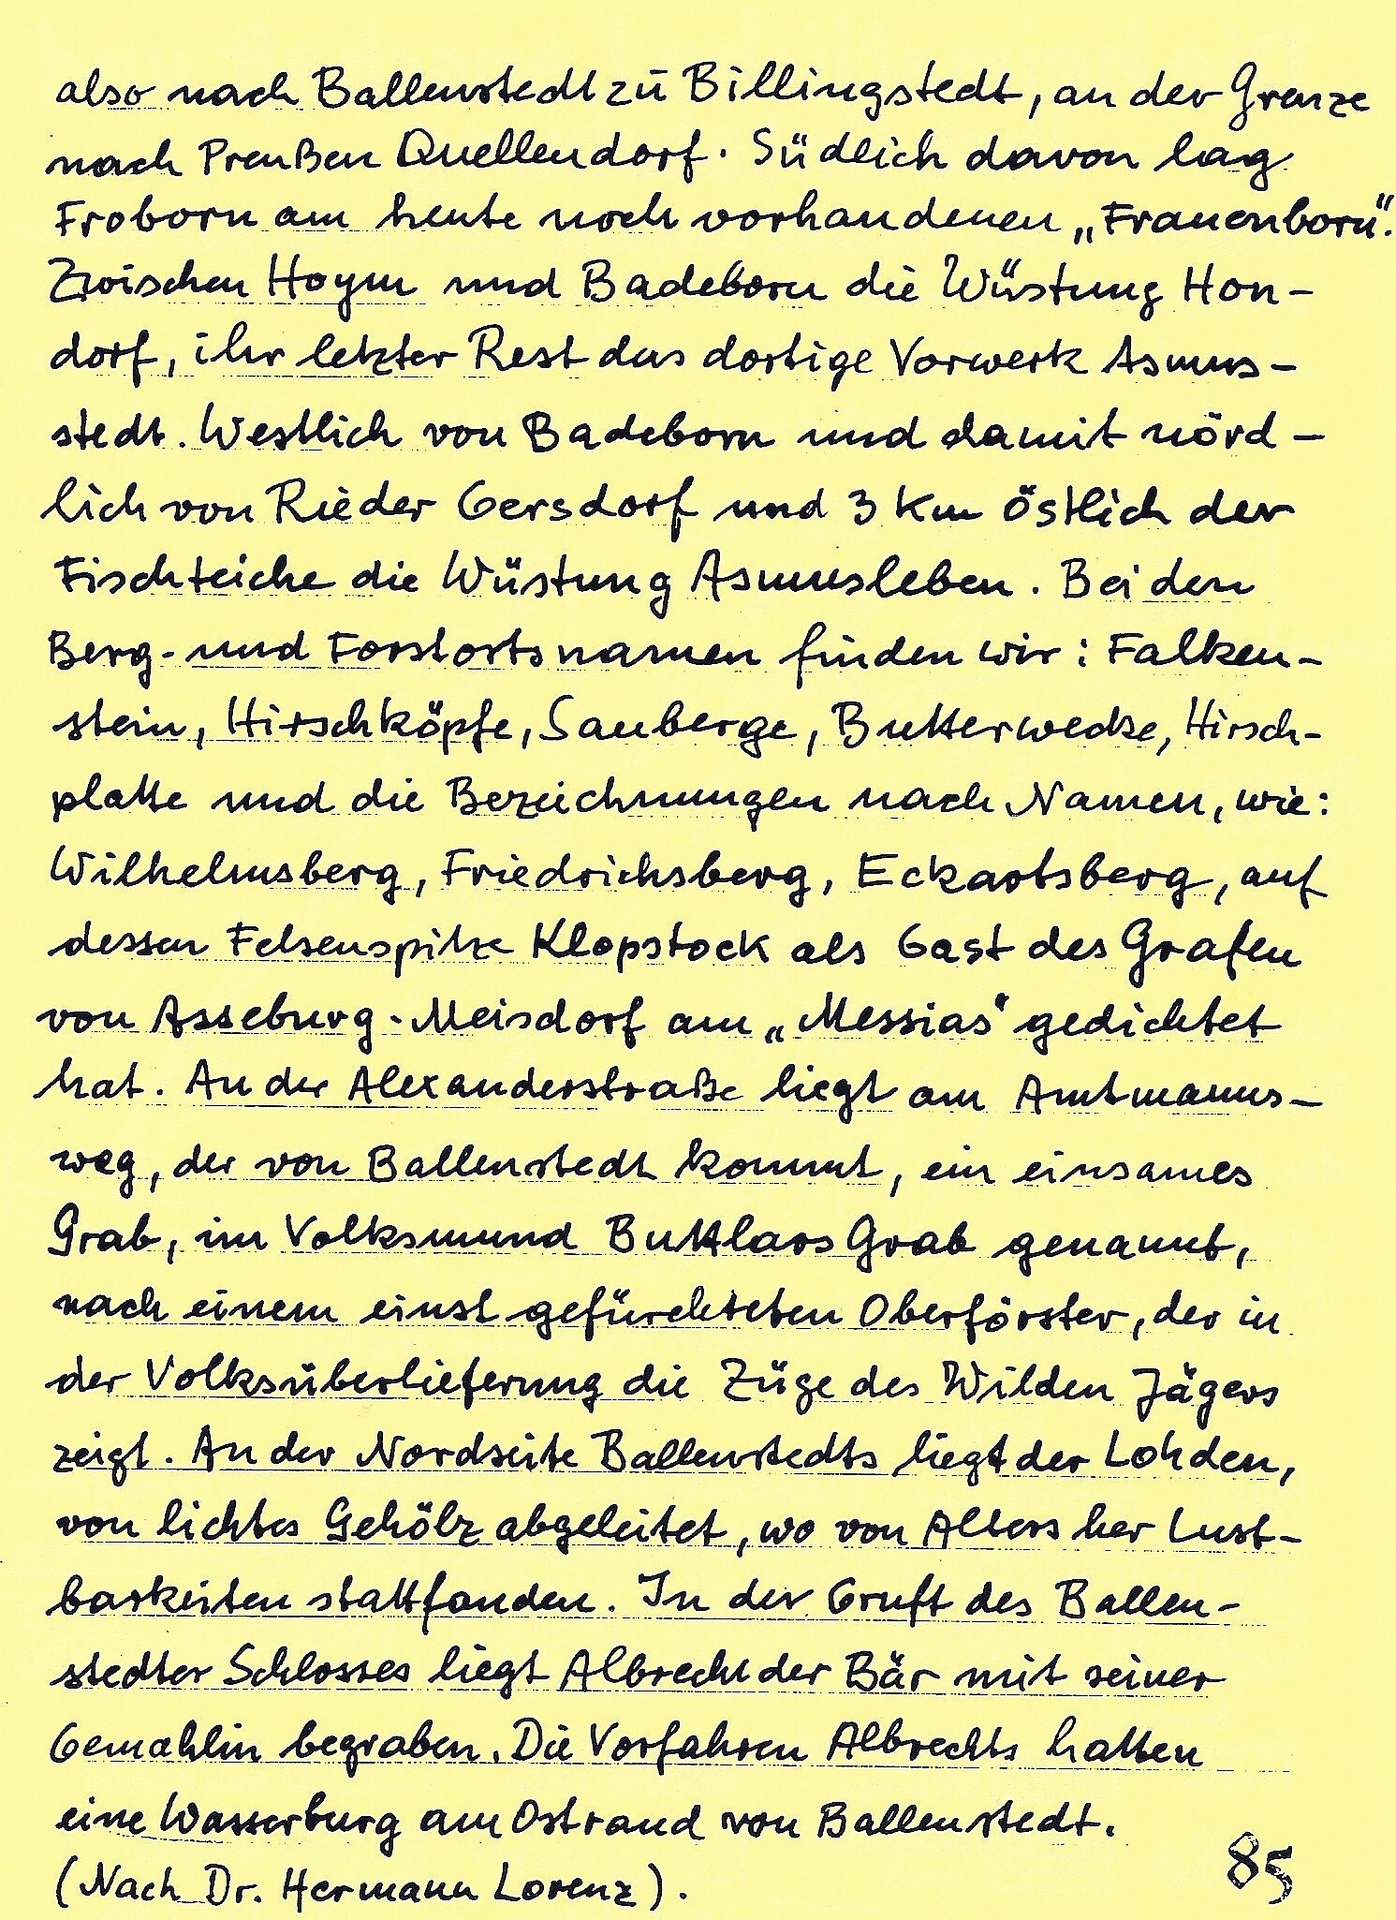 also nach Ballenstedt zu Billingstedt, an der Grenze
nach Preußen Quellendorf. Südlich davon lag
Froborn am heute noch vorhandenen „Frauenborn".
Zwischen Hoym und Badeborn die Wüstung Hon-
dorf, ihr letzter Rest das dortige Vorwerk Asmus-
stedt. Westlich von Badeborn und damit nörd-
lich von Rieder Gersdorf und 3 Km östlich der
Fischteiche die Wüstung Asmusleben. Bei den
Berg- und Forstortsnamen finden wir: Falken-
stein, Hirschköpfe, Sauberge, Butterwecke, Hirsch-
platte und die Bezeichnungen nach Namen, wie:
Wilhelmsberg, Friedrichsberg, Eckartsberg, auf
dessen Felsenspitze Klopstock als Gast des Grafen
von Asseburg-Meisdorf am „Messias" gedichtet
hat. An der Alexanderstraße liegt am Amtmanns-
weg, der von Ballenstedt kommt, ein einsames
Grab, im Volksmund Buttlars Grab genannt,
nach einem einst gefürchteten Oberförster, der in
der Volksüberlieferung die Züge des Wilden Jägers
zeigt. An der Nordseite Ballenstedts liegt der Lohden,
von lichtes Gehölz abgeleitet, wo von Alters her Lust-
barkeiten stattfanden. In der Gruft des Ballen-
stedter Schlosses liegt Albrecht der Bär mit seiner
Gemahlin begraben. Die Vorfahren Albrechts hatten
eine Wasserburg am Ostrand von Ballenstedt.
(Nach Dr. Hermann Lorenz).
85